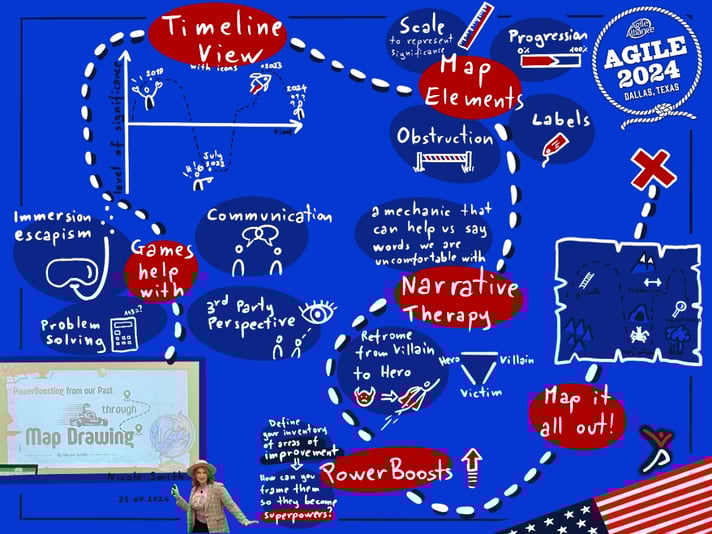 Timeline
View
with icons
level of significance
2019
2023
2024
???
!!!
July
2022
time
Scale
to represent
significance
Progression
0%
100%
Map
Elements
Obstruction
Labels
Agile Alliance
AGILE
2024
DALLAS, TEXAS
Immersion
escapism
Games
help
with
Communication
Problem
Solving
3rd Party
Perspective
a mechanic that
can help us say
words we are
uncomfortable with
Narrative
Therapy
Reframe
from Villain
to Hero
Hero
Villain
Victim
Map it
all out!
PowerBoosting from our Past
through
Map Drawing
By Nicole Smith
Nicole Smith
23.07.2024
Define
your inventory
of areas of
improvement
How can you
frame them
so they become
superpowers?
PowerBoosts